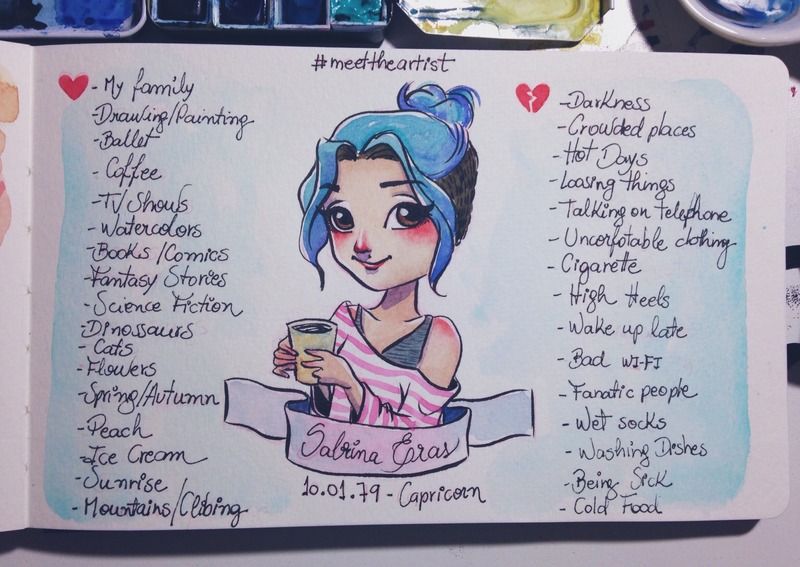 #meettheartist
- My family
- Drawing/Painting
- Ballet
- Coffee
- TV Shows
- Watercolors
- Books/Comics
- Fantasy Stories
- Science Fiction
- Dinossaurs
- Cats
- Flowers
- Spring/Autumn
- Peach
- Ice Cream
- Sunrise
- Mountains/Clibing
- Darkness
- Crowded places
- Hot Days
- Loosing things
- Talking on telephone
- Uncorfotable clothing
- Cigarette
- High Heels
- Wake up late
- Bad WI-FI
- Fanatic people
- Wet socks
- Washing Dishes
- Being Sick
- Cold Food
Sabrina Eras
10.01.79 - Capricorn